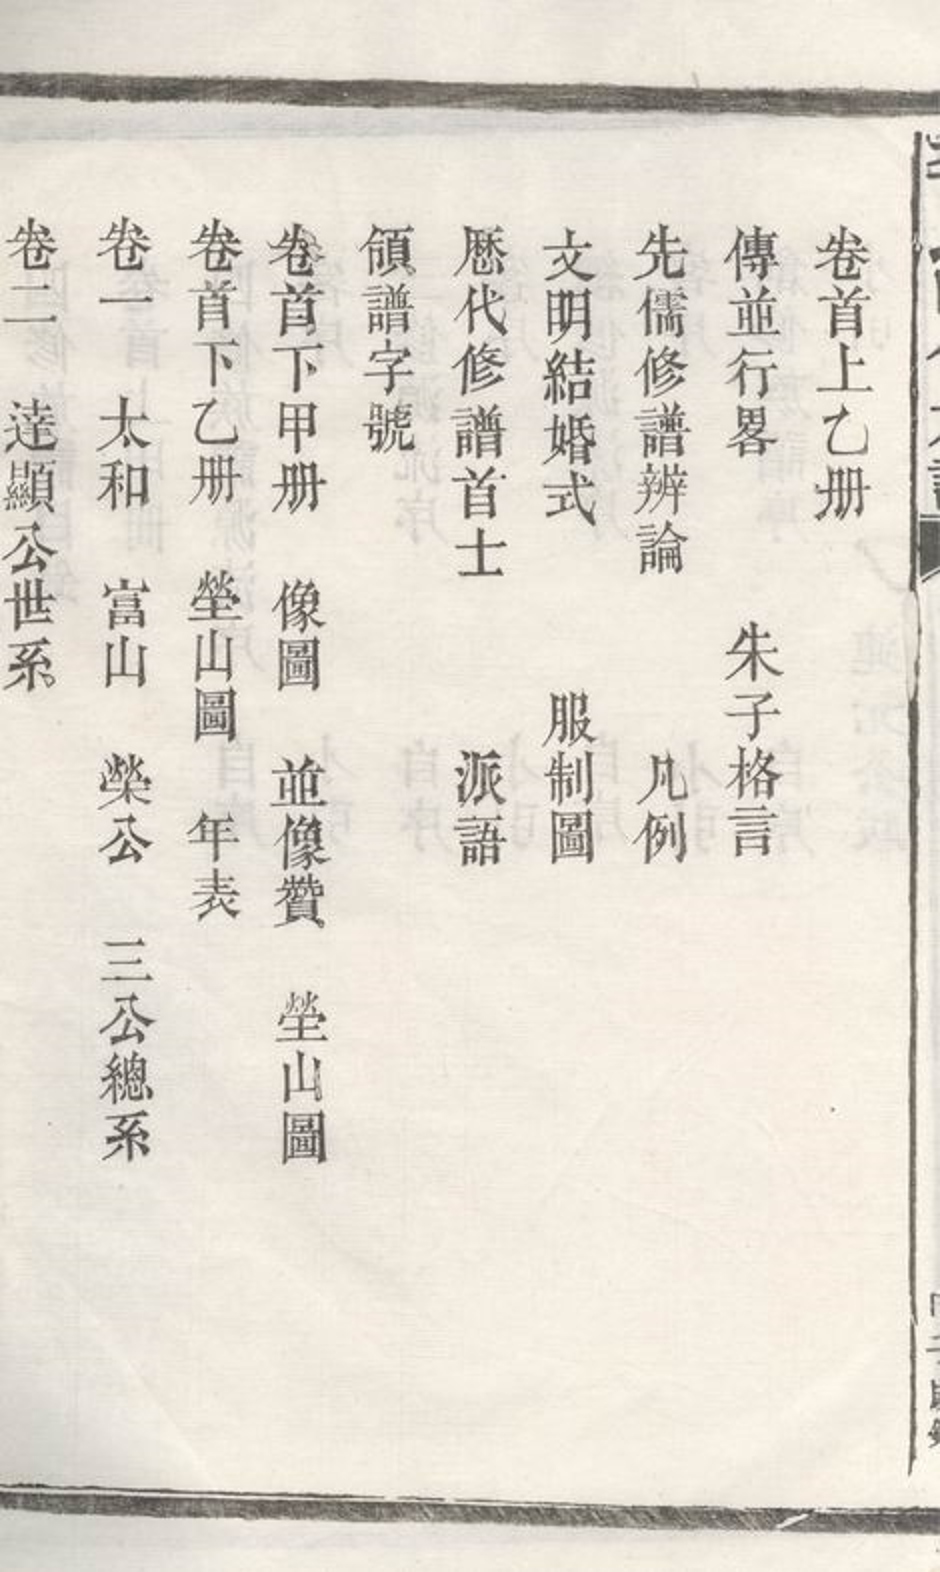 卷首上乙册
傳並行畧　朱子格言
先儒修譜辨論　凡例
文明結婚式　服制圖
歷代修譜首士　派語
領譜字號
卷首下甲册　像圖　並像贊　塋山圖
卷首下乙册　塋山圖　年表
卷一　太和　富山　榮公　三公總系
卷二　達顯公世系